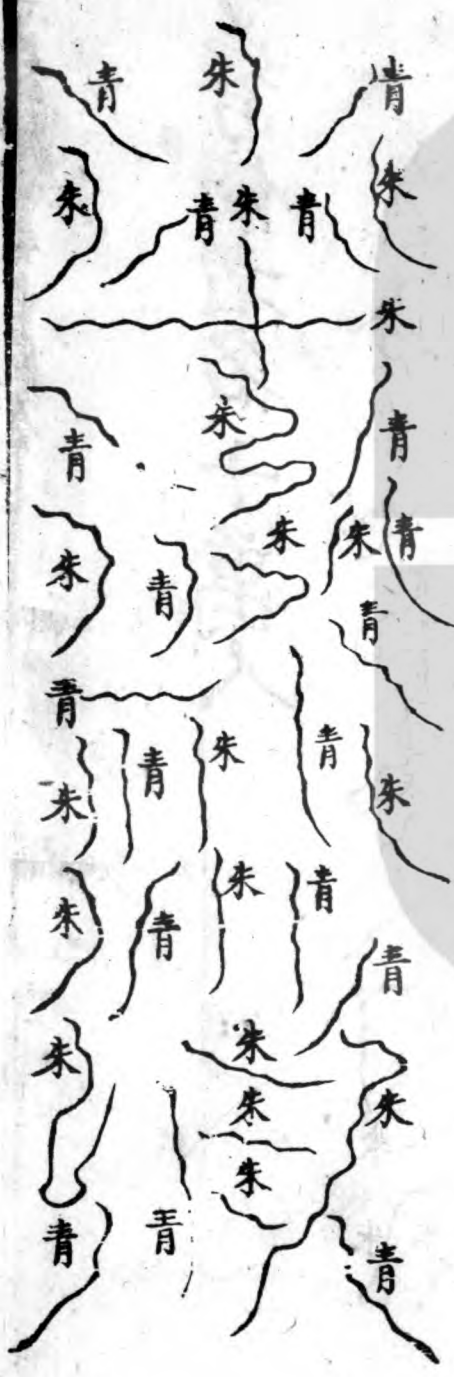 青 朱 青
朱 青 朱 青 朱
朱
朱 青
青
朱 青 朱 朱 青
青
青
朱 青 朱 青 朱
朱 青 朱 青
青
朱 朱 朱
朱
朱
青 青 青